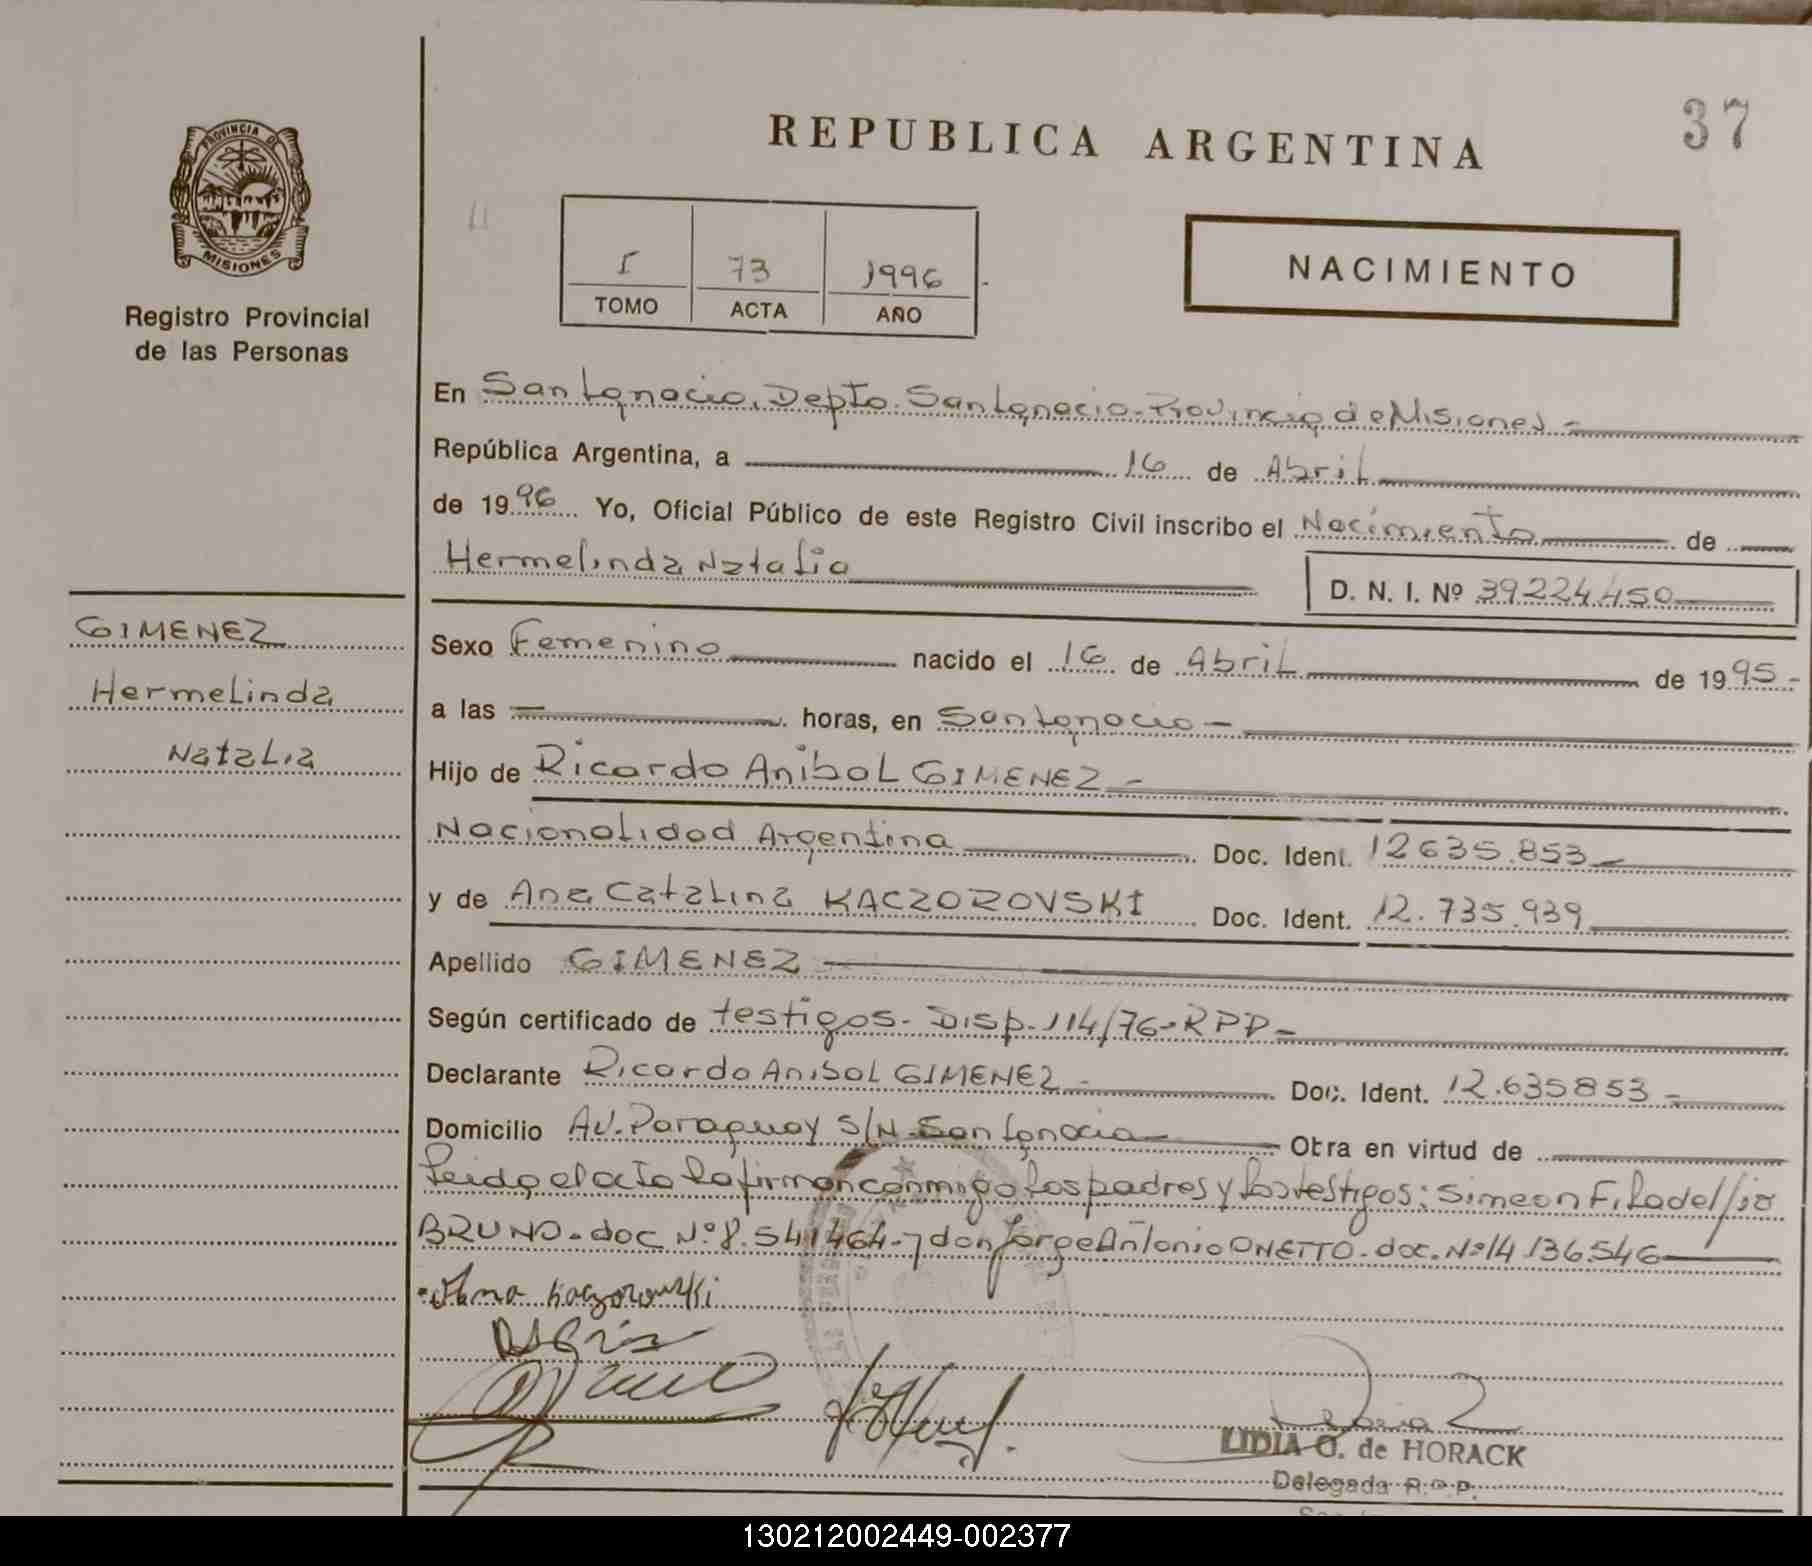 37
REPUBLICA ARGENTINA
PROVINCIA DE
MISIONES
Registro Provincial
de las Personas
I 73 1996
TOMO ACTA AÑO
NACIMIENTO
En San Ignacio, Depto. San Ignacio-Provincia de Misiones -
República Argentina, a 16 de Abril
de 1996 Yo, Oficial Público de este Registro Civil inscribo el Nacimiento de
Hermelinda Natalia D. N. I. Nº 39224450
GIMENEZ
Hermelinda
Natalia
Sexo Femenino nacido el 16 de Abril de 1995-
a las — horas, en San Ignacio -
Hijo de Ricardo Anibal GIMENEZ -
Nacionalidad Argentina Doc. Ident. 12635.853
y de Ana Catalina KACZOROVSKI Doc. Ident. 12.735.939
Apellido GIMENEZ
Según certificado de testigos- Disp. 114/76-RPP-
Declarante Ricardo Anibal GIMENEZ- Doc. Ident. 12.635853-
Domicilio Av. Paraguay S/N-San Ignacio Otra en virtud de
Leida el acta la firman conmigo los padres y los testigos: Simeon Filadelfio
BRUNO-doc Nº 8.541464-y don Jorge Antonio ONETTO-doc. Nº 14.136.546
Ana Kaczorowski
LIDIA O. de HORACK
Delegada R.P.P.
130212002449-002377